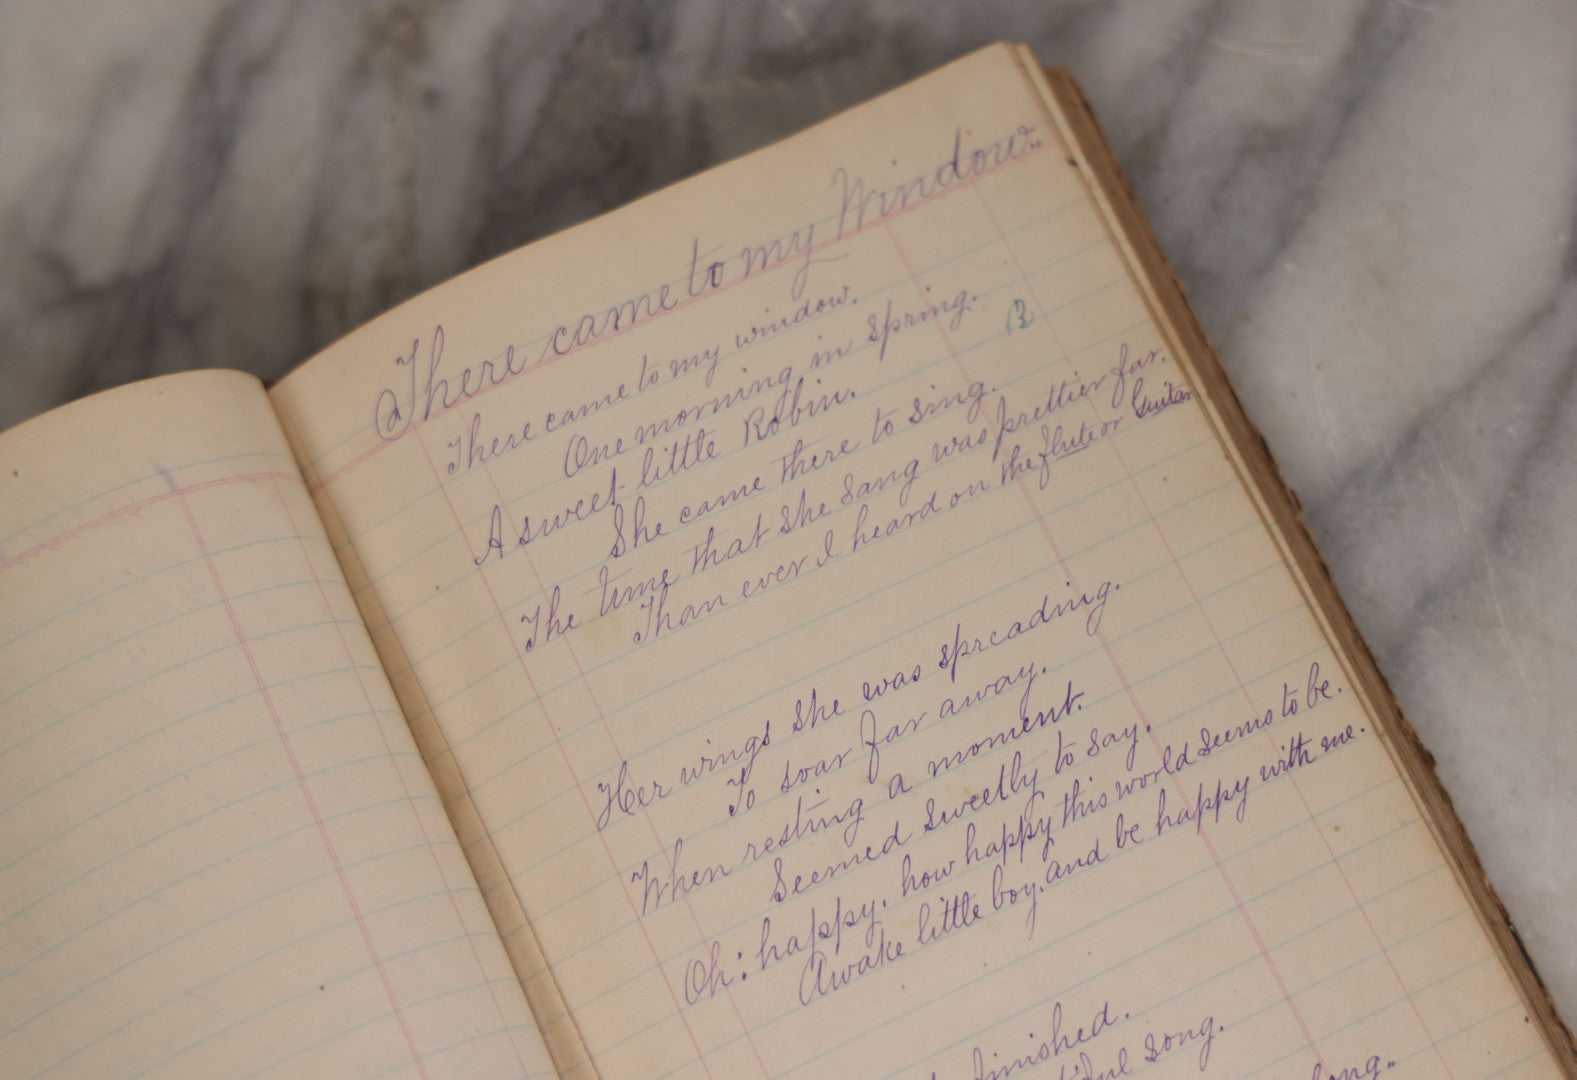 There came to my Window.
There came to my window.
One morning in spring.
B
A sweet little Robin.
She came there to sing.
The time that she sang was prettier far.
Than ever I heard on the flute or Guitar
Her wings she was spreading.
To soar far away.
When resting a moment.
Seemed sweetly to say.
Oh: happy, how happy this world seems to be.
Awake little boy, and be happy with me.
finished.
song.